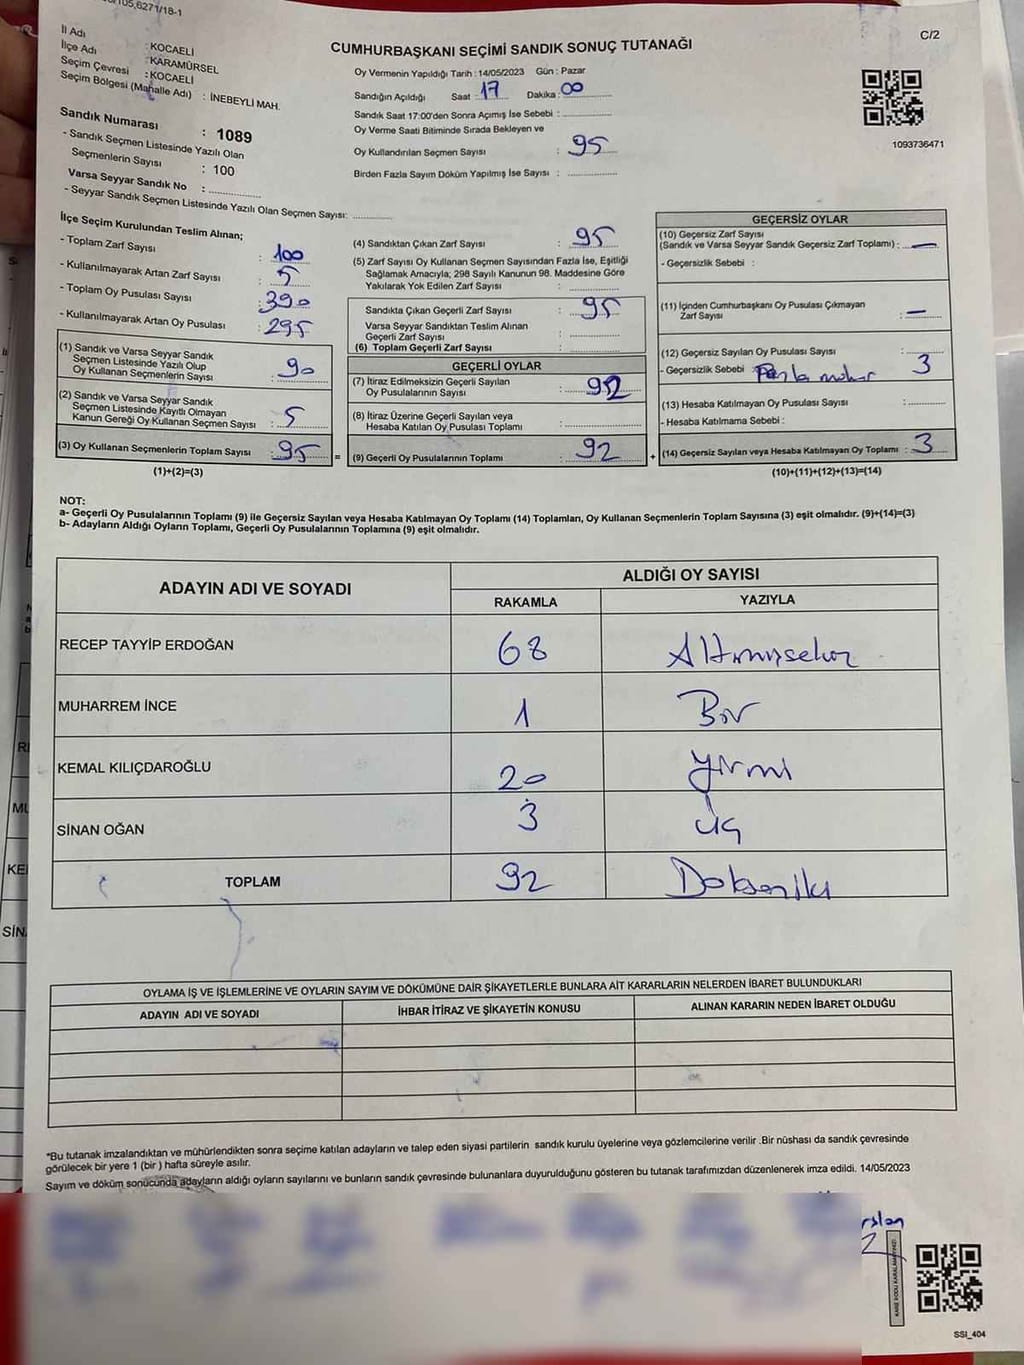 105,6271/18-1
C/2
İl Adı : KOCAELİ
İlçe Adı : KARAMÜRSEL
Seçim Çevresi : KOCAELİ
Seçim Bölgesi (Mahalle Adı) : İNEBEYLİ MAH.
Sandık Numarası : 1089
- Sandık Seçmen Listesinde Yazılı Olan
Seçmenlerin Sayısı : 100
Varsa Seyyar Sandık No :
- Seyyar Sandık Seçmen Listesinde Yazılı Olan Seçmen Sayısı:
CUMHURBAŞKANI SEÇİMİ SANDIK SONUÇ TUTANAĞI
Oy Vermenin Yapıldığı Tarih : 14/05/2023 Gün : Pazar
Sandığın Açıldığı Saat : 17 Dakika : 00
Sandık Saat 17:00'den Sonra Açımış İse Sebebi :
Oy Verme Saati Bitiminde Sırada Bekleyen ve
Oy Kullandırılan Seçmen Sayısı : 95
Birden Fazla Sayım Döküm Yapılmış İse Sayısı :
1093736471
İlçe Seçim Kurulundan Teslim Alınan;
- Toplam Zarf Sayısı : 100
- Kullanılmayarak Artan Zarf Sayısı : 5
- Toplam Oy Pusulası Sayısı : 390
- Kullanılmayarak Artan Oy Pusulası : 295
(1) Sandık ve Varsa Seyyar Sandık
Seçmen Listesinde Yazılı Olup
Oy Kullanan Seçmenlerin Sayısı : 90
(2) Sandık ve Varsa Seyyar Sandık
Seçmen Listesinde Kayıtlı Olmayan
Kanun Gereği Oy Kullanan Seçmen Sayısı : 5
(3) Oy Kullanan Seçmenlerin Toplam Sayısı : 95 =
(1)+(2)=(3)
(4) Sandıktan Çıkan Zarf Sayısı : 95
(5) Zarf Sayısı Oy Kullanan Seçmen Sayısından Fazla İse, Eşitliği
Sağlamak Amacıyla; 298 Sayılı Kanunun 98. Maddesine Göre
Yakılarak Yok Edilen Zarf Sayısı :
Sandıkta Çıkan Geçerli Zarf Sayısı : 95
Varsa Seyyar Sandıktan Teslim Alınan
Geçerli Zarf Sayısı :
(6) Toplam Geçerli Zarf Sayısı :
GEÇERLİ OYLAR
(7) İtiraz Edilmeksizin Geçerli Sayılan
Oy Pusulalarının Sayısı : 92
(8) İtiraz Üzerine Geçerli Sayılan veya
Hesaba Katılan Oy Pusulası Toplamı :
(9) Geçerli Oy Pusulalarının Toplamı : 92 +
GEÇERSİZ OYLAR
(10) Geçersiz Zarf Sayısı
(Sandık ve Varsa Seyyar Sandık Geçersiz Zarf Toplamı) : —
- Geçersizlik Sebebi :
(11) İçinden Cumhurbaşkanı Oy Pusulası Çıkmayan
Zarf Sayısı : —
(12) Geçersiz Sayılan Oy Pusulası Sayısı : 3
- Geçersizlik Sebebi : Fazla mühür
(13) Hesaba Katılmayan Oy Pusulası Sayısı :
- Hesaba Katılmama Sebebi :
(14) Geçersiz Sayılan veya Hesaba Katılmayan Oy Toplamı : 3
(10)+(11)+(12)+(13)=(14)
NOT:
a- Geçerli Oy Pusulalarının Toplamı (9) ile Geçersiz Sayılan veya Hesaba Katılmayan Oy Toplamı (14) Toplamları, Oy Kullanan Seçmenlerin Toplam Sayısına (3) eşit olmalıdır. (9)+(14)=(3)
b- Adayların Aldığı Oyların Toplamı, Geçerli Oy Pusulalarının Toplamına (9) eşit olmalıdır.
ADAYIN ADI VE SOYADI ALDIĞI OY SAYISI
RAKAMLA YAZIYLA
RECEP TAYYİP ERDOĞAN 68 Altmışsekiz
MUHARREM İNCE 1 Bir
KEMAL KILIÇDAROĞLU 20 Yirmi
SİNAN OĞAN 3 Üç
TOPLAM 92 Doksaniki
OYLAMA İŞ VE İŞLEMLERİNE VE OYLARIN SAYIM VE DÖKÜMÜNE DAİR ŞİKAYETLERLE BUNLARA AİT KARARLARIN NELERDEN İBARET BULUNDUKLARI
ADAYIN ADI VE SOYADI İHBAR İTİRAZ VE ŞİKAYETİN KONUSU ALINAN KARARIN NEDEN İBARET OLDUĞU
*Bu tutanak imzalandıktan ve mühürlendikten sonra seçime katılan adayların ve talep eden siyasi partilerin sandık kurulu üyelerine veya gözlemcilerine verilir .Bir nüshası da sandık çevresinde
görülecek bir yere 1 (bir ) hafta süreyle asılır.
Sayım ve döküm sonucunda adayların aldığı oyların sayılarını ve bunların sandık çevresinde bulunanlara duyurulduğunu gösteren bu tutanak tarafımızdan düzenlenerek imza edildi. 14/05/2023
rslan
SSI_404